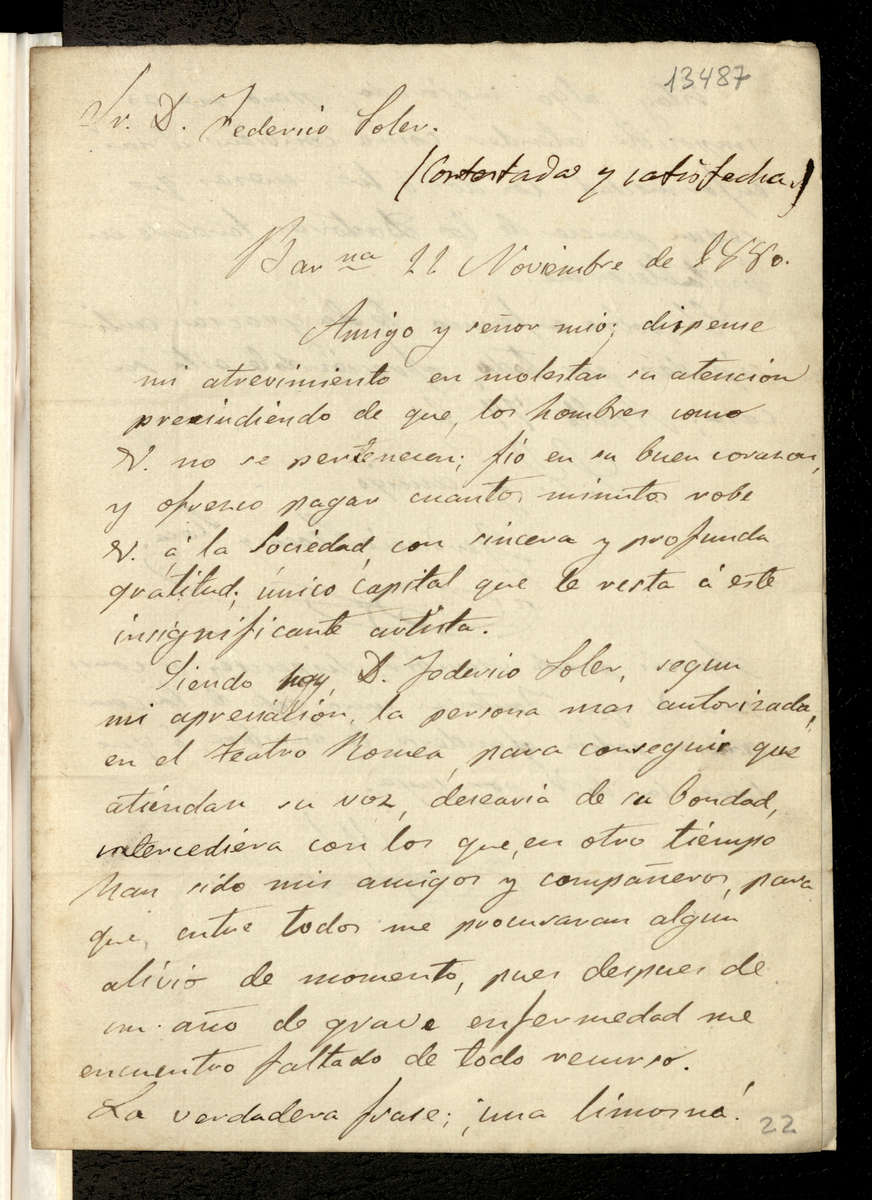 13487
Sr. D. Federico Soler.
(Contestada y satisfecha)
Barna 22 Noviembre de 1880.
Amigo y señor mio; dispense
mi atrevimiento en molestar su atención
presindiendo de que, los hombres como
V. no se pertenecen; fio en su buen corazon,
y ofresco pagar cuantos minutos robe
V. á la Sociedad, con sincera y profunda
gratitud; único capital que le resta á este
insignificante artista.
Siendo hoy, D. Federico Soler, segun
mi apreciación, la persona mas autorizada,
en el Teatro Romea, para conseguir que
atiendan su voz, desearia de su bondad,
intercediera con los que, en otro tiempo
han sido mis amigos y compañeros, para
que, entre todos me procuraran algún
alivio de momento, pues despues de
un año de grave enfermedad me
encuentro faltado de todo recurso.
La verdadera frase; ¡una limosna!
22